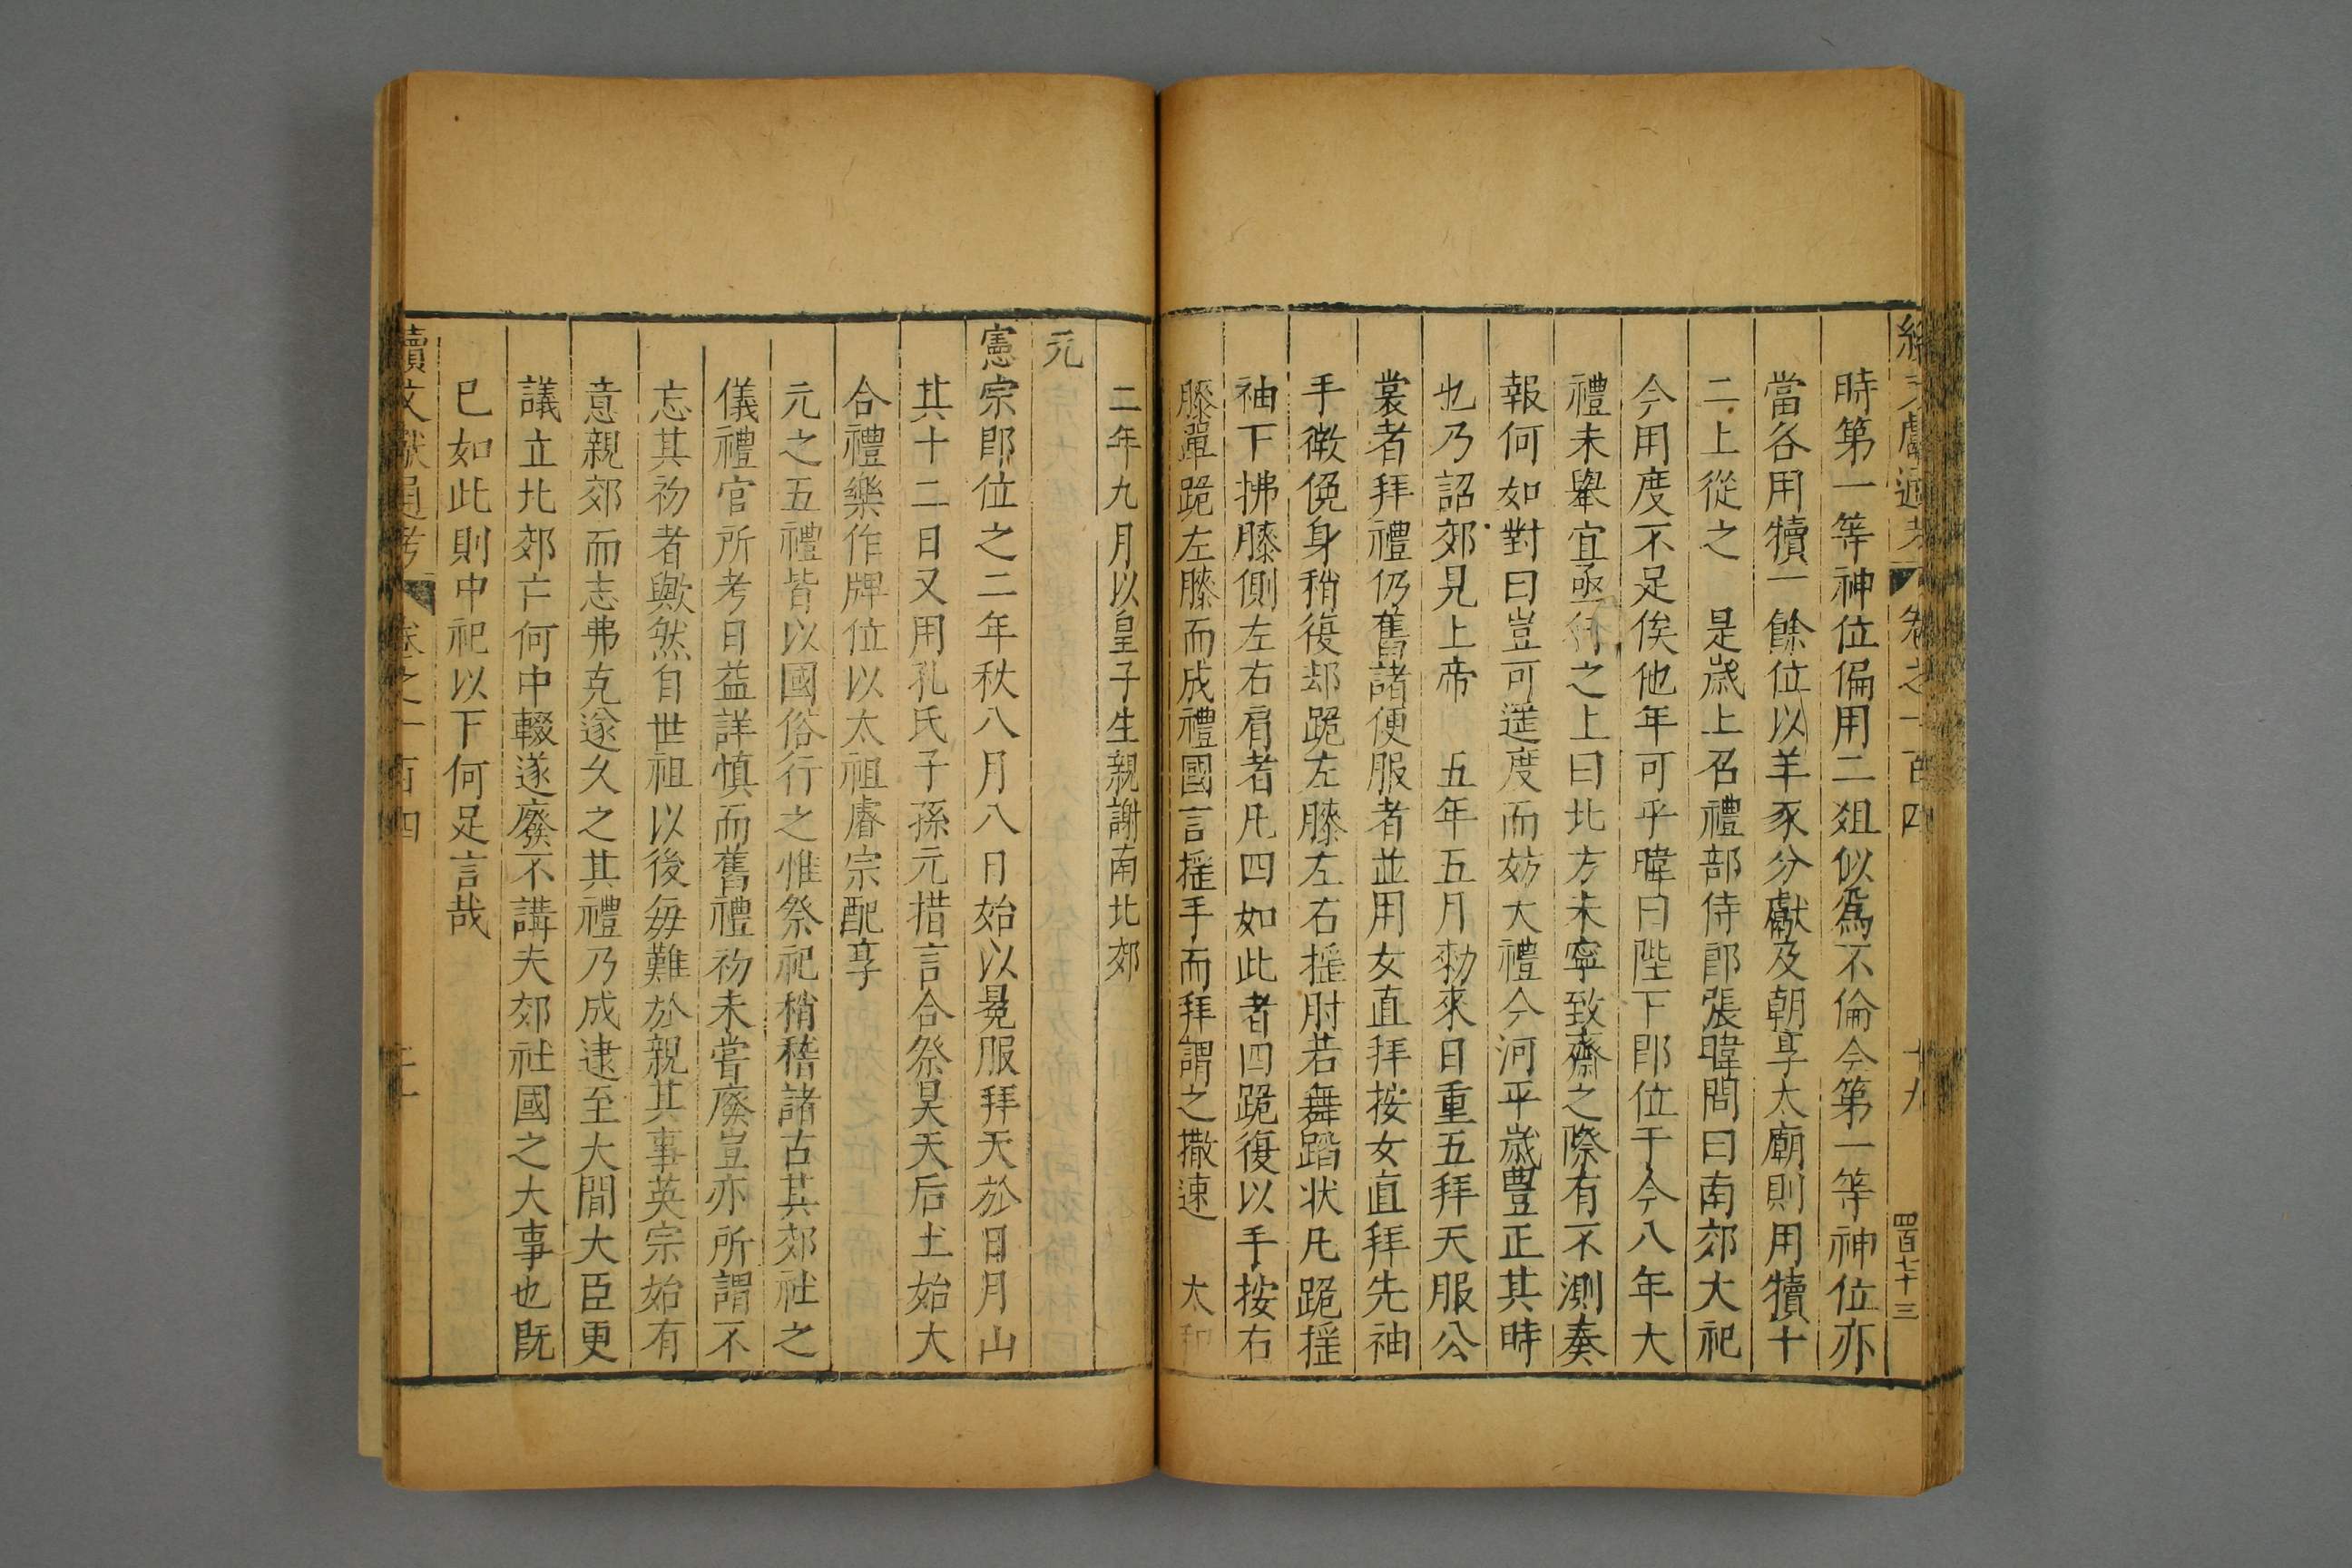 續文獻通考 卷之一百四 十九 四百七十三
時第一等神位偏用二俎似爲不倫今第一等神位亦
當各用犢一餘位以羊豕分獻及朝享太廟則用犢十
二上從之 是歲上召禮部侍郎張暐問曰南郊大祀
今用度不足俟他年可乎暐曰陛下即位于今八年大
禮未舉宜亟行之上曰北方未寧致齋之際有不測奏
報何如對曰豈可逆度而妨大禮今河平歲豐正其時
也乃詔郊見上帝 五年五月勑來日重五拜天服公
裳者拜禮仍舊諸便服者並用女直拜按女直拜先袖
手微俛身稍復却跪左膝左右揺肘若舞蹈状凡跪揺
袖下拂膝側左右肩者凡四如此者四跪復以手按右
膝單跪左膝而成禮國言揺手而拜謂之撒速 太和
二年九月以皇子生親謝南北郊
元
憲宗即位之二年秋八月八日始以冕服拜天於日月山
其十二日又用孔氏子孫元措言合祭昊天后土始大
合禮樂作牌位以太祖睿宗配享
元之五禮皆以國俗行之惟祭祀稍稽諸古其郊社之
儀禮官所考日益詳慎而舊禮初未嘗廢豈亦所謂不
忘其初者歟然自世祖以後每難於親其事英宗始有
意親郊而志弗克遂久之其禮乃成逮至大間大臣更
議立北郊亡何中輟遂廢不講夫郊社國之大事也既
已如此則中祀以下何足言哉
續文獻通考 卷之一百四